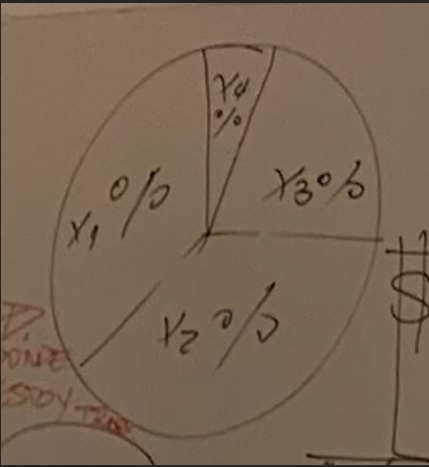 X4
%
X3%
X1%
X2%
$
DONDE
ESTOY